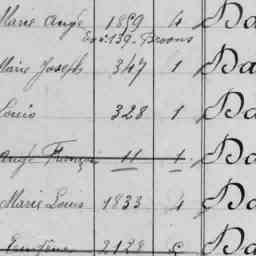 Marie Ange 1859 4 Da
Env. 139. Broons
Marie Joseph 347 1 Da
Louis 328 1 Da
Ange François 11 1 Da
Marie Louis 1833 4 Da
Eugène 2128 5 Da